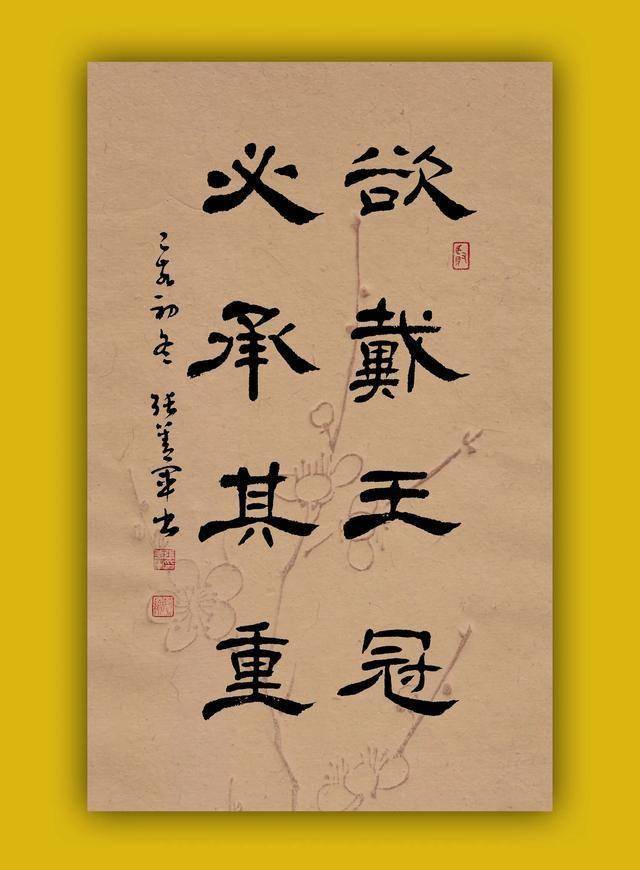 欲戴王冠
必承其重
己亥初冬 张善军书